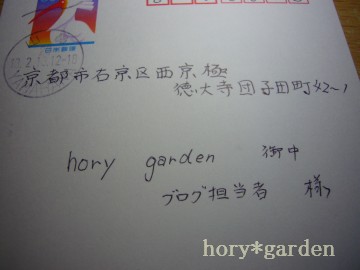 日本郵便
12-18
京都市右京区西京極
徳大寺団子田町42-1
hory garden 御中
ブログ担当者 様
hory*garden